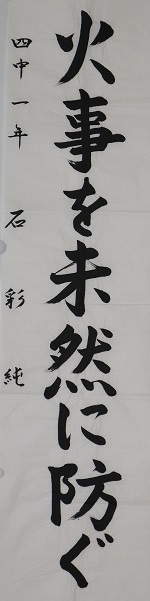 火事を未然に防ぐ
四中一年 石彩純